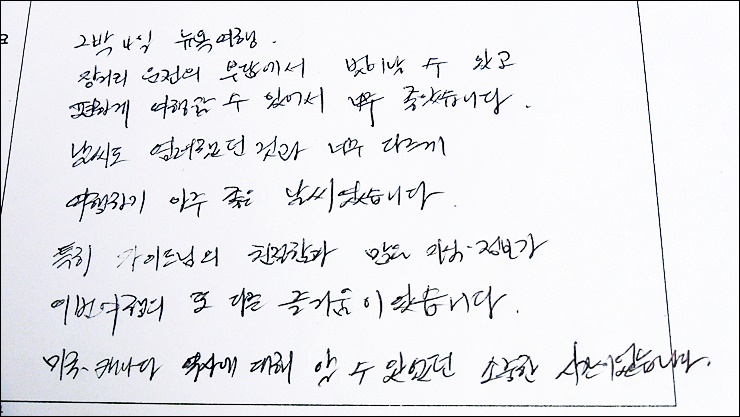 2박 4일 뉴욕여행.
장거리 운전의 부담에서 벗어날 수 있고
편하게 여행할 수 있어서 너무 좋았습니다.
날씨도 염려했던 것과 너무 다르게
여행하기 아주 좋은 날씨였습니다.
특히 가이드님의 친절함과 많은 지식·정보가
이번여정의 또 다른 즐거움이었습니다.
미국·캐나다 역사에 대해 알 수 있었던 소중한 시간이었습니다.